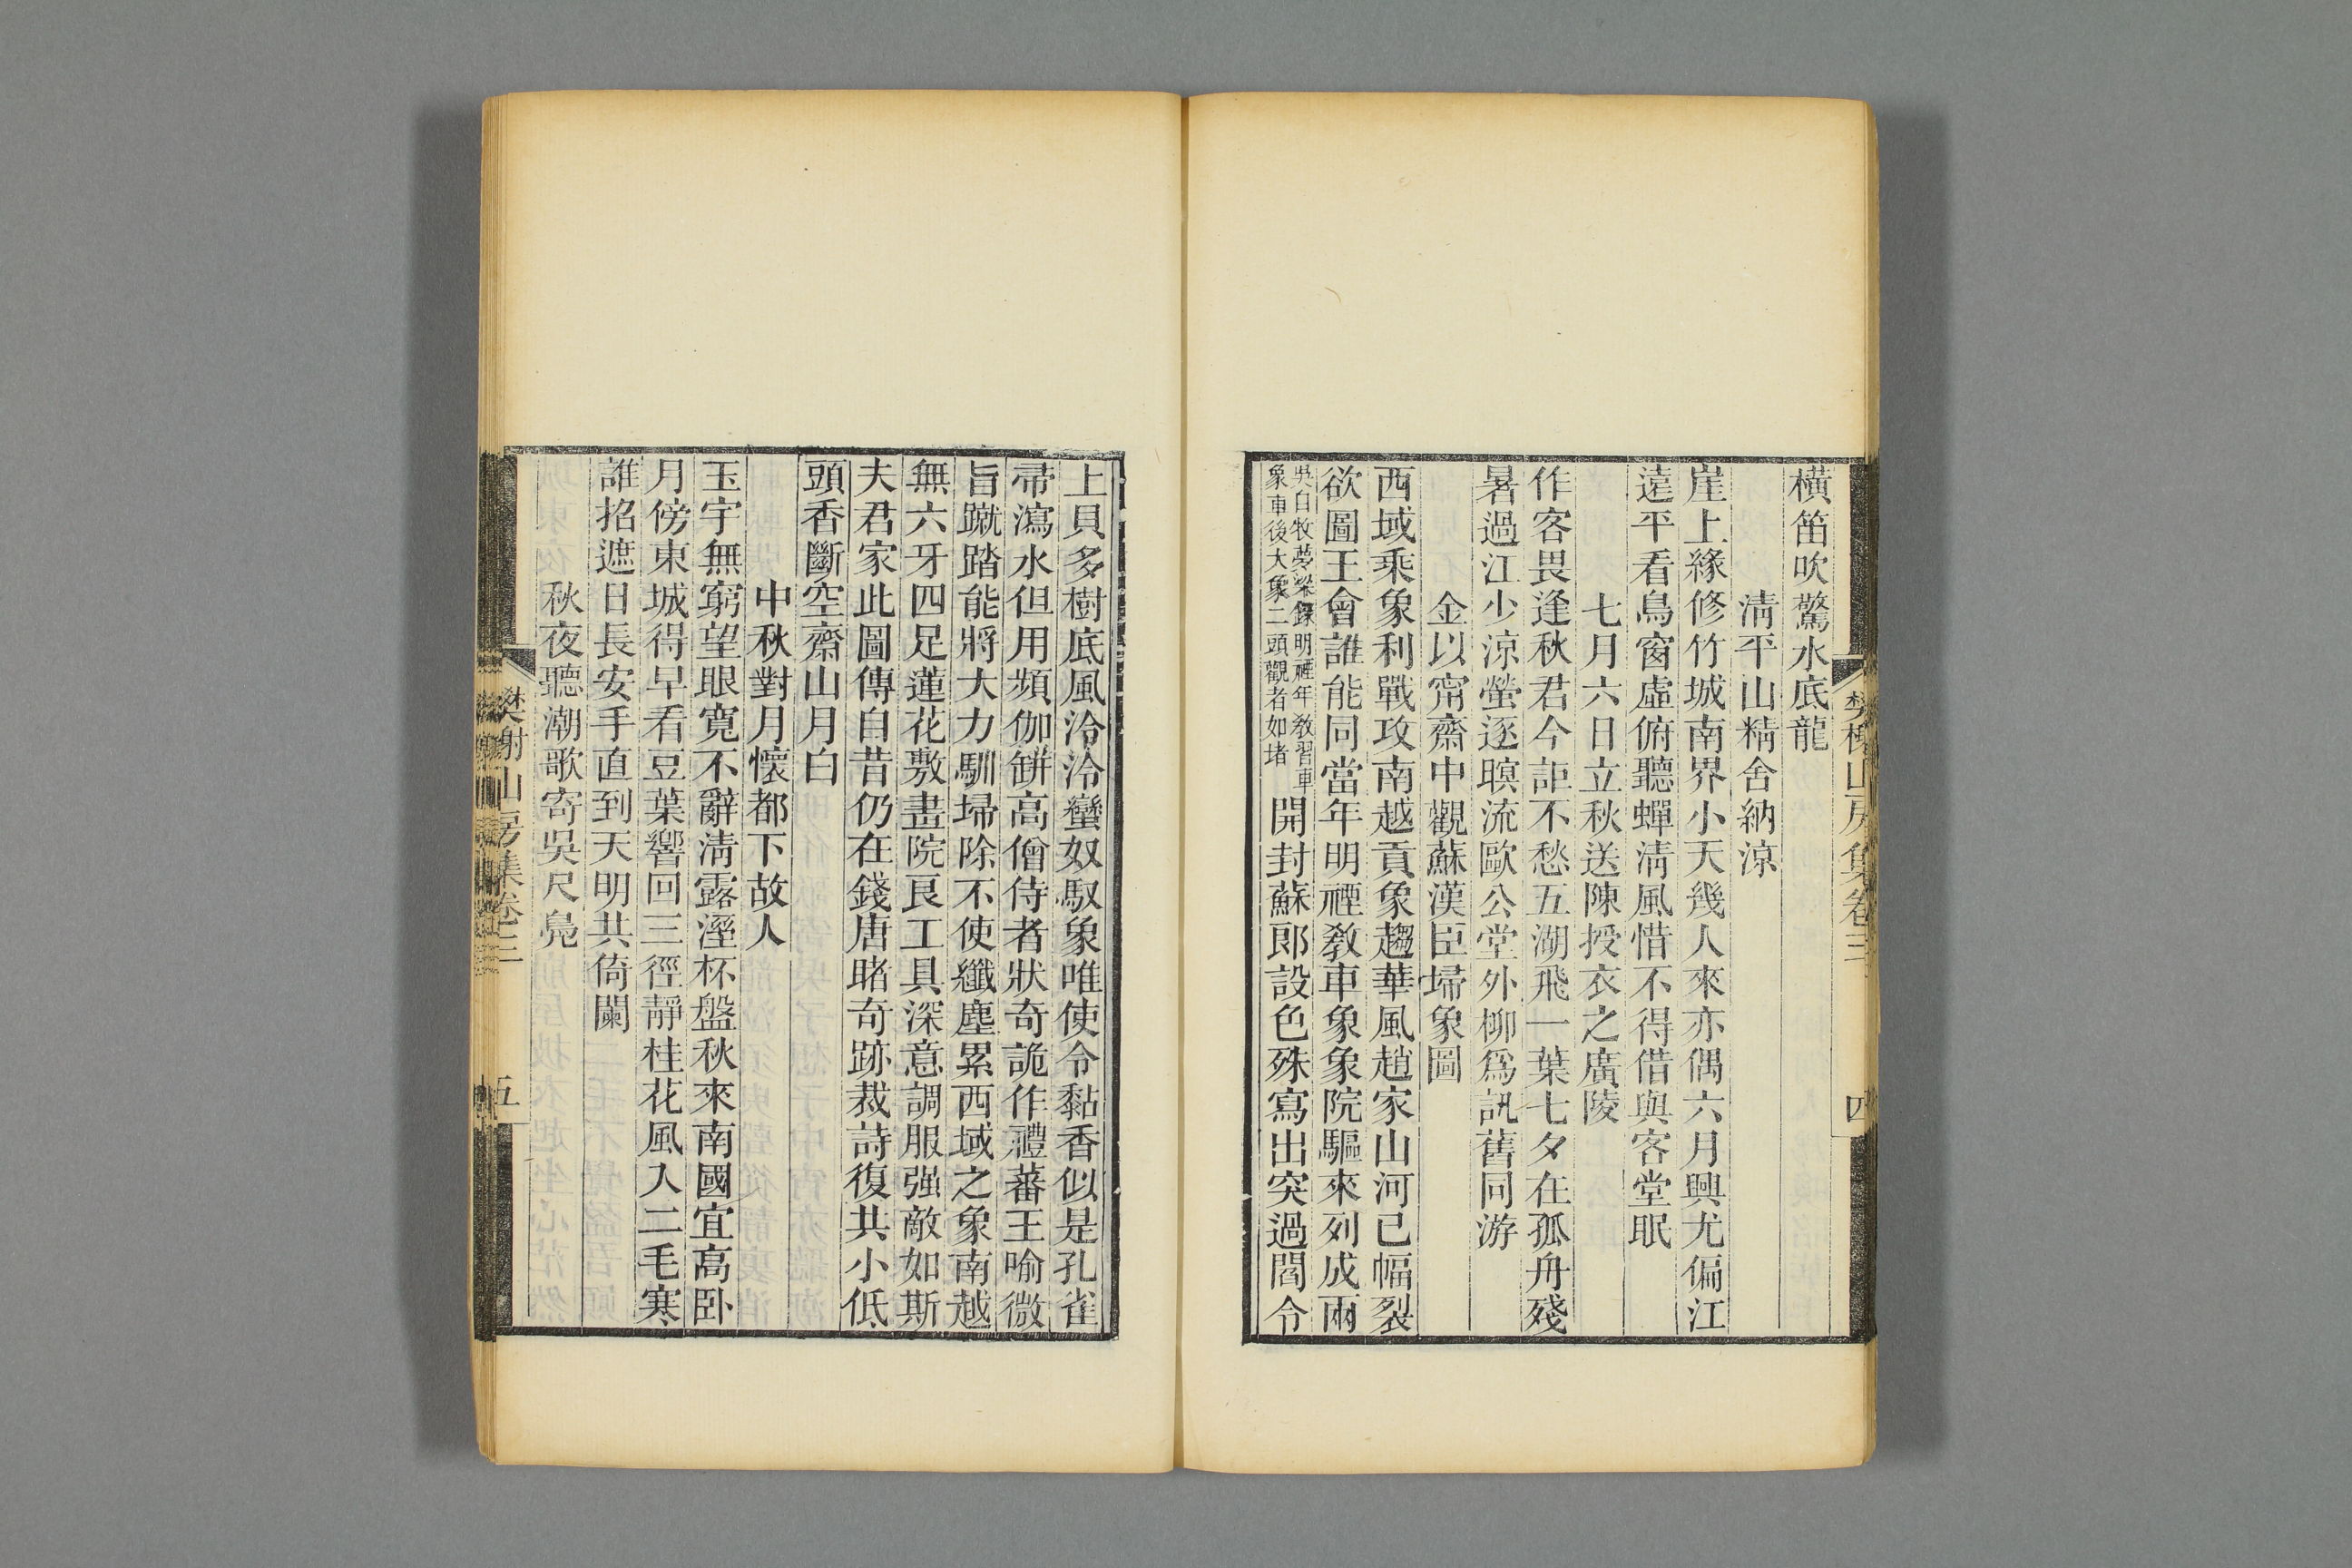 橫笛吹驚水底龍
清平山精舍納涼
崖上緣修竹城南界小天幾人來亦偶六月興尤偏江
遠平看鳥窗虛俯聽蟬清風惜不得借與客堂眠
七月六日立秋送陳授衣之廣陵
作客畏逢秋君今詎不愁五湖飛一葉七夕在孤舟殘
暑過江少涼螢逐暝流歐公堂外柳爲訊舊同游
金以甯齋中觀蘇漢臣埽象圖
西域乘象利戰攻南越貢象趨華風趙家山河已幅裂
欲圖王會誰能同當年明禋敎車象象院驅來列成兩
吳自牧夢粱錄明禋年敎習車
象車後大象二頭觀者如堵
開封蘇郞設色殊寫出突過閻令
樊榭山房集卷三
四
上貝多樹底風泠泠蠻奴馭象唯使令黏香似是孔雀
帚瀉水但用頻伽缾高僧侍者狀奇詭作禮蕃王喻微
旨蹴踏能將大力馴埽除不使纖塵累西域之象南越
無六牙四足蓮花敷畫院良工具深意調服强敵如斯
夫君家此圖傳自昔仍在錢唐睹奇跡裁詩復共小低
頭香斷空齋山月白
中秋對月懷都下故人
玉宇無窮望眼寬不辭淸露溼杯盤秋來南國宜高臥
月傍東城得早看豆葉響回三徑靜桂花風入二毛寒
誰招遮日長安手直到天明共倚闌
秋夜聽潮歌寄吳尺鳧
樊榭山房集卷三
五